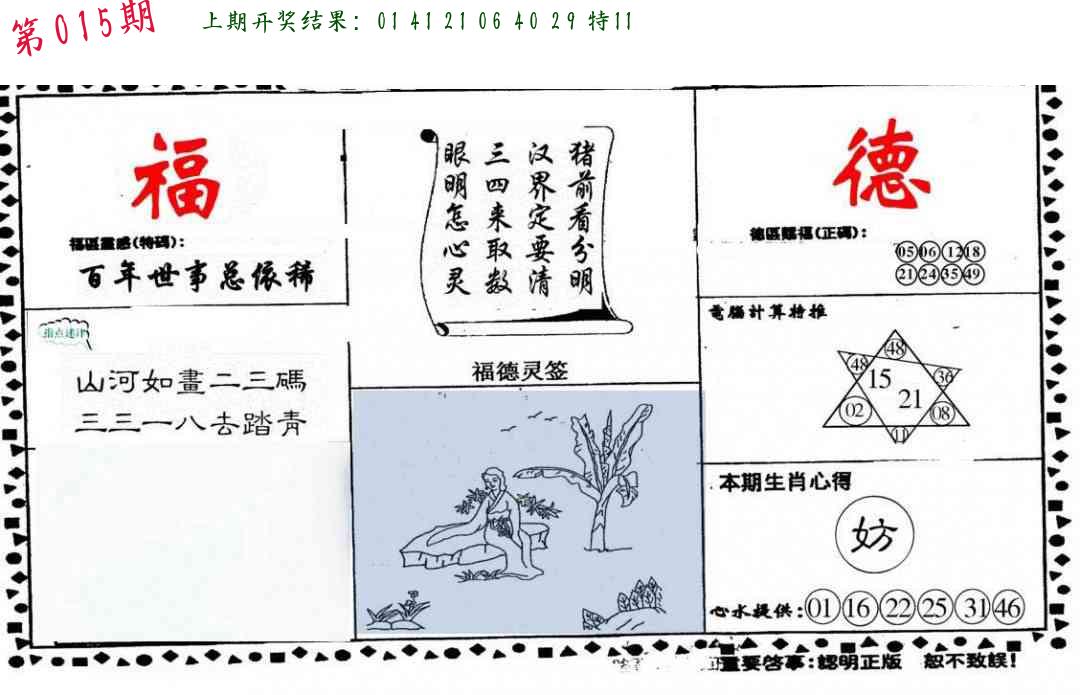 第015期
上期开奖结果: 01 41 21 06 40 29 特11
福
福區靈感(特碼):
百年世事总依稀
指点迷津
山河如畫二三碼
三三一八去踏青
猪前看分明
汉界定要清
三四来取数
眼明怎心灵
福德灵签
德
德區賜福(正碼):
05 06 12 18
21 24 35 49
電腦計算特推
48
48 36
15
21
02 08
11
本期生肖心得
妨
心水提供: 01 16 22 25 31 46
重要啓事:認明正版 恕不致誤!